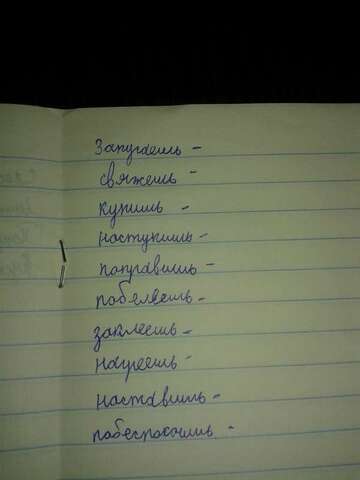 Запугаешь -
свяжешь -
купишь -
наступишь -
поправишь -
побелеешь -
заклеешь -
нагреешь -
наставишь -
побеспокоишь -